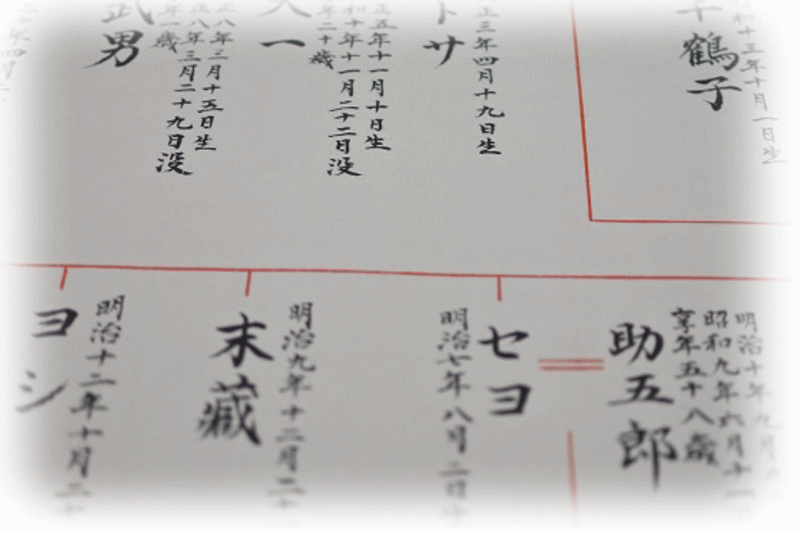 千鶴子
和十三年十月一日生
正三年四月十九日生
サ
正五年十一月十日生
和十年十一月二十二日没
年二十歳
一
正八年三月十五日生
八年三月二十九日没
年一歳
武男
明治十年九月
昭和九年六月十一
享年五十八歳
助五郎
セヨ
明治七年八月二日生
明治九年十二月二十
末藏
明治十二年十月二十
ヨシ